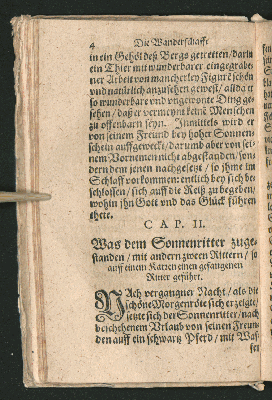 4 Die Wanderschafft
in ein Gehöl deß Bergs getretten / darin
ein Thier mit wunderbarer eingegrabe-
ner Arbeit von mancherley Figur schön
und natürlich anzusehen gewest / allda er
so wunderbare und ungewonte Ding gese-
hen / daß er vermeynt keine Menschen
zu offenbarn seyn. Innmittels wird er
von seinem Freund bey hoher Sonnen-
schein auffgeweckt / darumb aber von sei-
nem Vornemen nicht abgestanden / son-
dern dem jenen nachgesetzt / so jhme im
Schlaff vorkommen: entlich bey sich be-
schlossen / sich auff die Reiß zu begeben /
wohin jhn Gott und das Glück führen
thete.
CAP. II.
Was dem Sonnenritter zuge-
standen / mit andern zween Rittern / so
auff einen Karren einen gefangenen
Ritter geführt.
NAch vergangner Nacht / als die
schöne Morgenröte sich erzeigte /
setzte sich der Sonnenritter / nach
beschehenem Urlaub von seinen Freun-
den auff ein schwartz Pferd / mit Waf-
fen